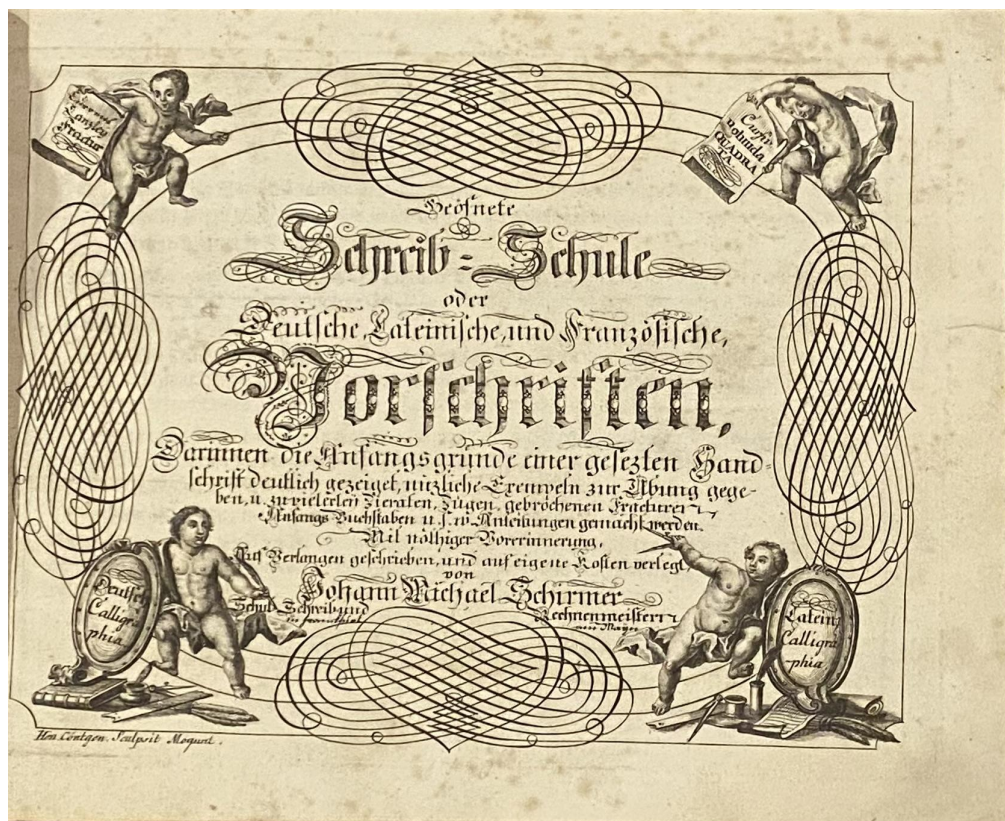 Currents
Canzley
Fractur
Cursiv
Rotunda
QUADRA
TA.
Geöfnete
Schreib=Schule
oder
Deutsche, Lateinische, und Französische,
Vorschriften,
Darinnen die Anfangsgründe einer gesezten Hand=
schrift deutlich gezeiget, nüzliche Exempeln zur Übung gege=
ben, u. zu vielerley Zieraten, Zügen, gebrochenen Fracturer
Anfangs Buchstaben u. s. w. Anleitungen gemacht werden.
Mit nöthiger Vorerinnerung,
Auf Verlangen geschrieben, und auf eigene Kosten verlegt
von
Johann Michael Schirmer
Schul Schreib und Rechnenmeistern
in Franckfurt am Mayn
Deutsch
Calligra
phia
Latein
Calligra
-phia
Hen. Cöntgen. Sculpsit Mogunt.